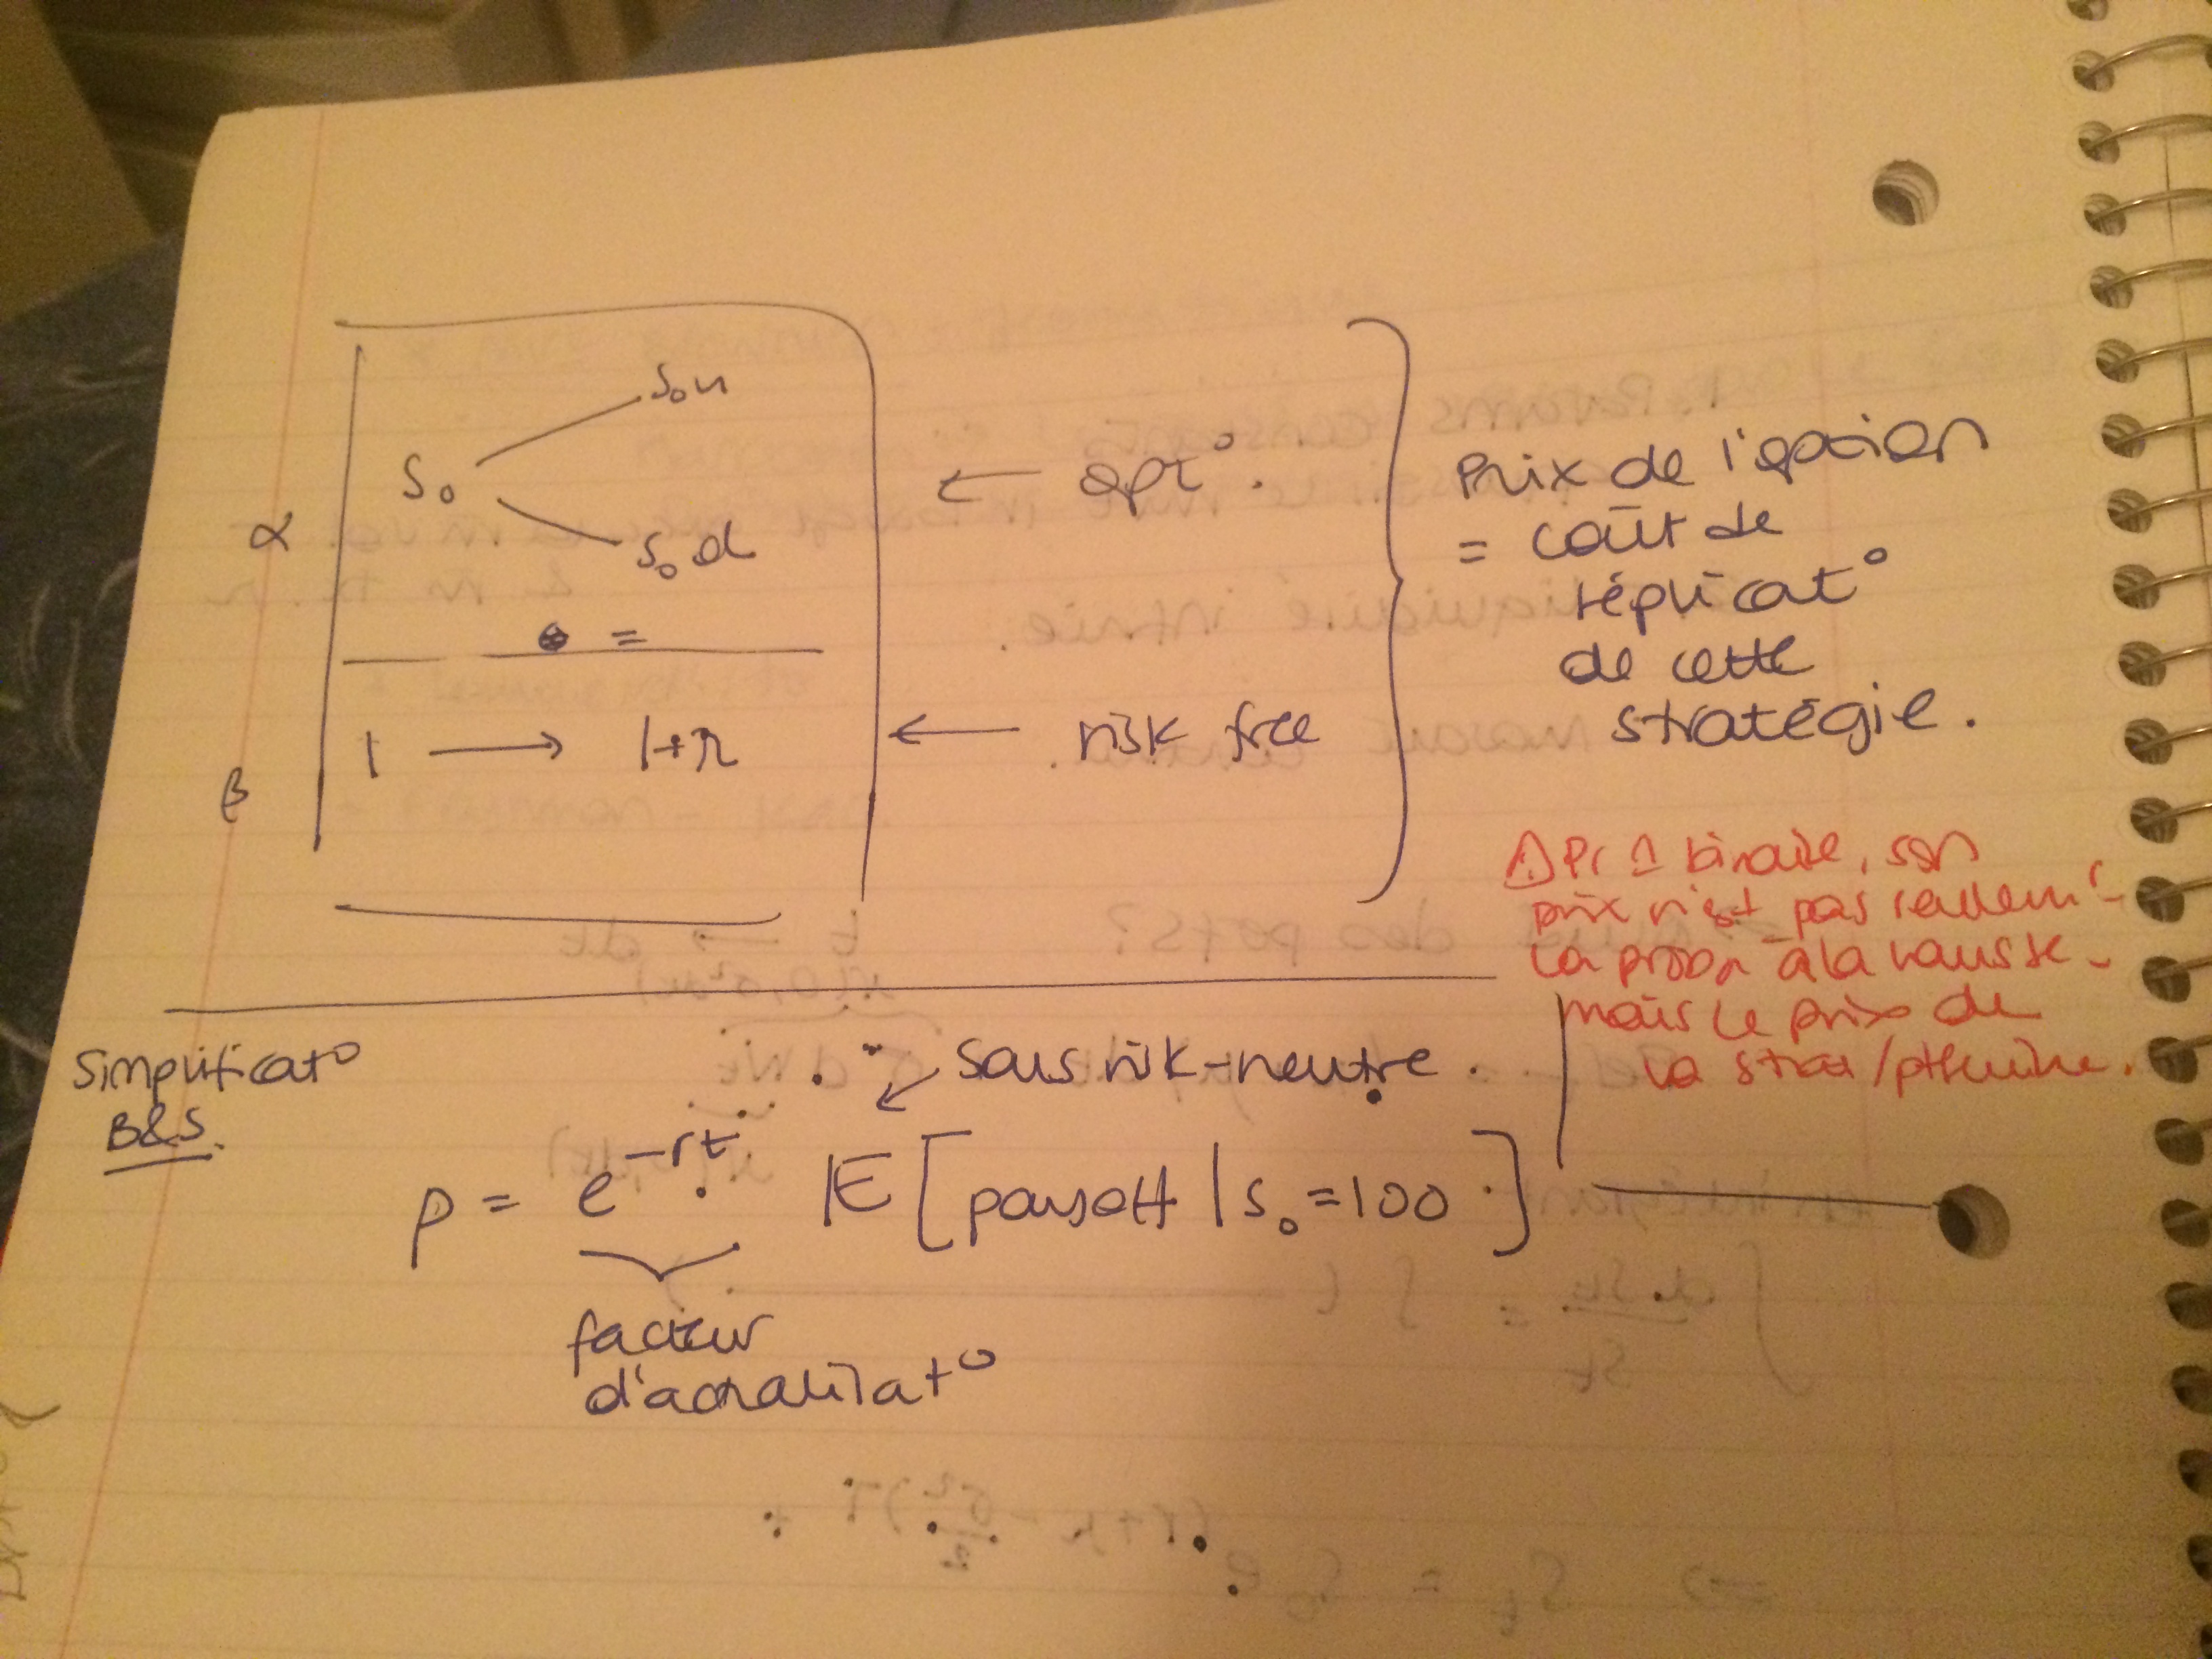 S₀u
S₀
α
S₀d
=
1 → 1+r
β
← opt°.
← risk free
Prix de l'option
= coût de
réplicat°
de cette
stratégie.
⚠ Pr 1 binaire, son
prix n'est pas réellemt
la proba à la hausse
mais le prix de
la strat
Simplificat°
B&S.
sous risk-neutre.
p = e^{-rt} 𝔼[payoff | S₀=100]
facteur
d'actualisat°